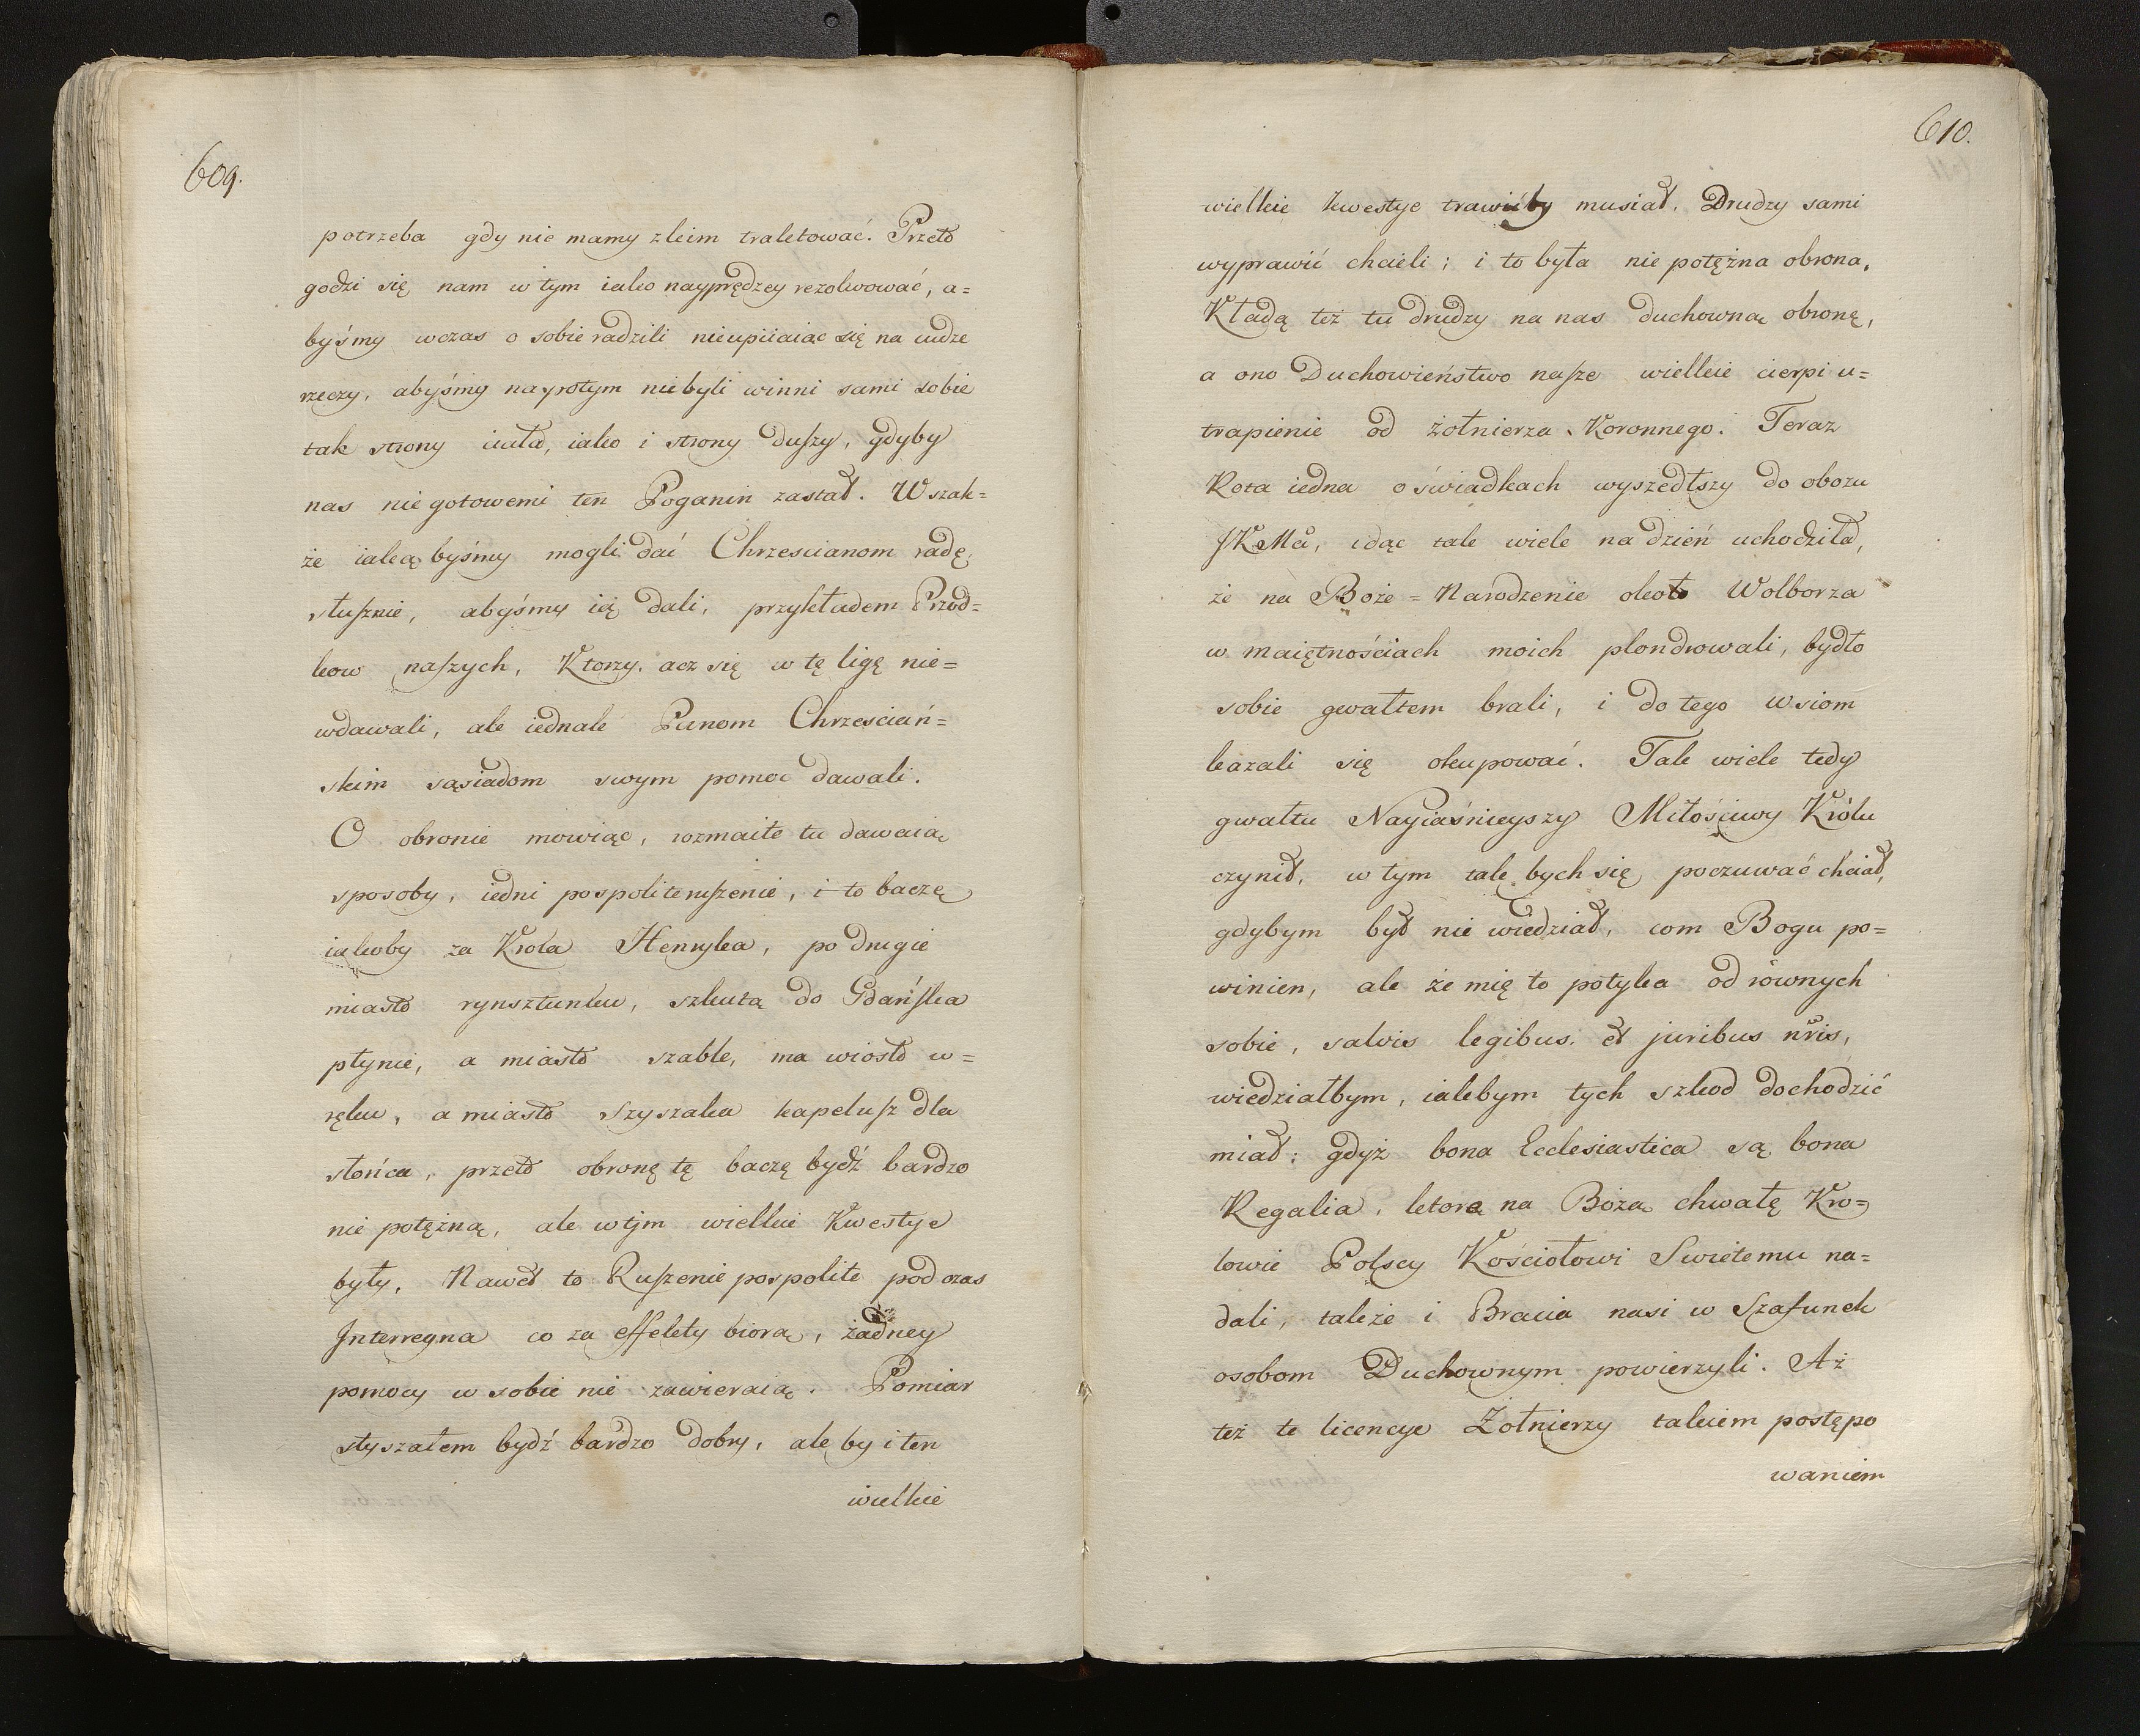 609.
potrzeba gdy nie mamy z kim traktować. Przeto
godzi się nam w tym iako nayprędzey rezolwować, a=
byśmy wczas o sobie radzili nieupiiaiąc się na cudze
rzeczy, abyśmy napotym niebyli winni sami sobie
tak strony ciała, iako i strony duszy, gdyby
nas niegotowemi ten Poganin zastał. Wszak=
że iakąbyśmy mogli dać Chrzescianom radę,
słusznie, abyśmy ią dali, przykładem Przod=
kow naszych, Ktorzy acz się w tę ligę nie=
wdawali, ale iednak Panom Chrzesciań=
skim sąsiadom swym pomoc dawali.
O obronie mowiąc, rozmaite tu dawaią
sposoby, iedni pospoliteruszenie, i to baczę
iakoby za Krola Henryka, po drugie
miasto rynsztunku, szkutą do Gdańska
płynie, a miasto szable, ma wiosło w=
ręku, a miasto Szyszaka kapelusz dla
słońca, przeto obronę tę baczę bydź bardzo
nie potężną, ale w tym wielkie Kwestye
były. Nawet to Ruszenie pospolite pod czas
Interregna co za effekty biorą, żadney
pomocy w sobie nie zawieraią. Pomiar
słyszałem bydź bardzo dobry, ale by i ten
wielkie
610.
wielkie kwestye trawićby musiał. Drudzy sami
wyprawić chcieli; i to była nie potężna obrona.
Kładą też tu drudzy na nas duchowną obronę,
a ono Duchowieństwo nasze wielkie cierpi u=
trapienie od żołnierza Koronnego. Teraz
Rota iedna o świadkach wyszedłszy do obozu
JKMci, idąc tak wiele na dzień uchodziła,
że na Boże=Narodzenie około Wolborza
w maiętnościach moich plondrowali, bydło
sobie gwałtem brali, i do tego wsiom
kazali się okupować. Tak wiele tedy
gwałtu Nayiaśnieyszy Miłościwy Królu
czynił, w tym tak bych się poczuwać chciał,
gdybym był nie wiedział, com Bogu po=
winien, ale że mię to potyka od równych
sobie, salvis legibus et juribus nris,
wiedziałbym, iakbym tych szkod dochodzić
miał: gdyż bona Ecclesiastica są bona
Regalia, ktore na Bożą chwałę Kro=
lowie Polscy Kościołowi Swietemu na=
dali, także i Bracia nasi w Szafunek
osobom Duchownym powierzyli. Aż
też te licencye Żołnierzy takiem postępo
waniem